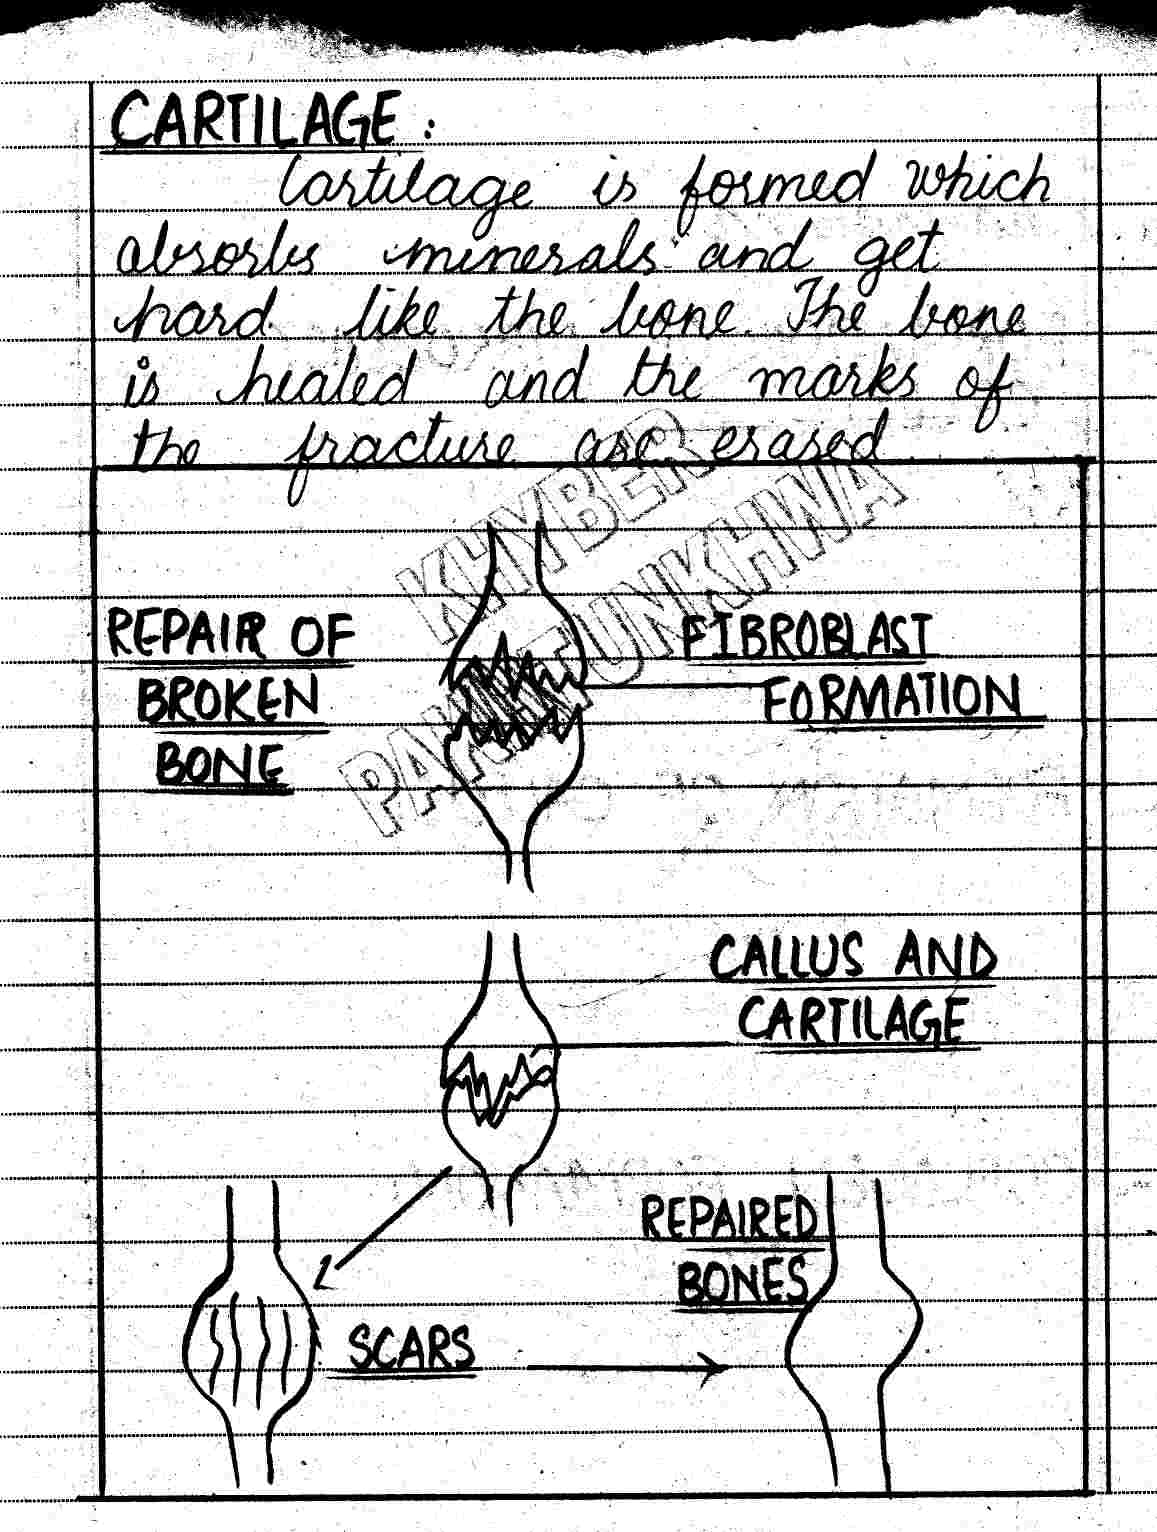 CARTILAGE:
Cartilage is formed which
absorbs minerals and get
hard like the bone. The bone
is healed and the marks of
the fracture are erased.
KHYBER
PAKHTUNKHWA
REPAIR OF
BROKEN
BONE
FIBROBLAST
FORMATION
CALLUS AND
CARTILAGE
REPAIRED
BONES
SCARS